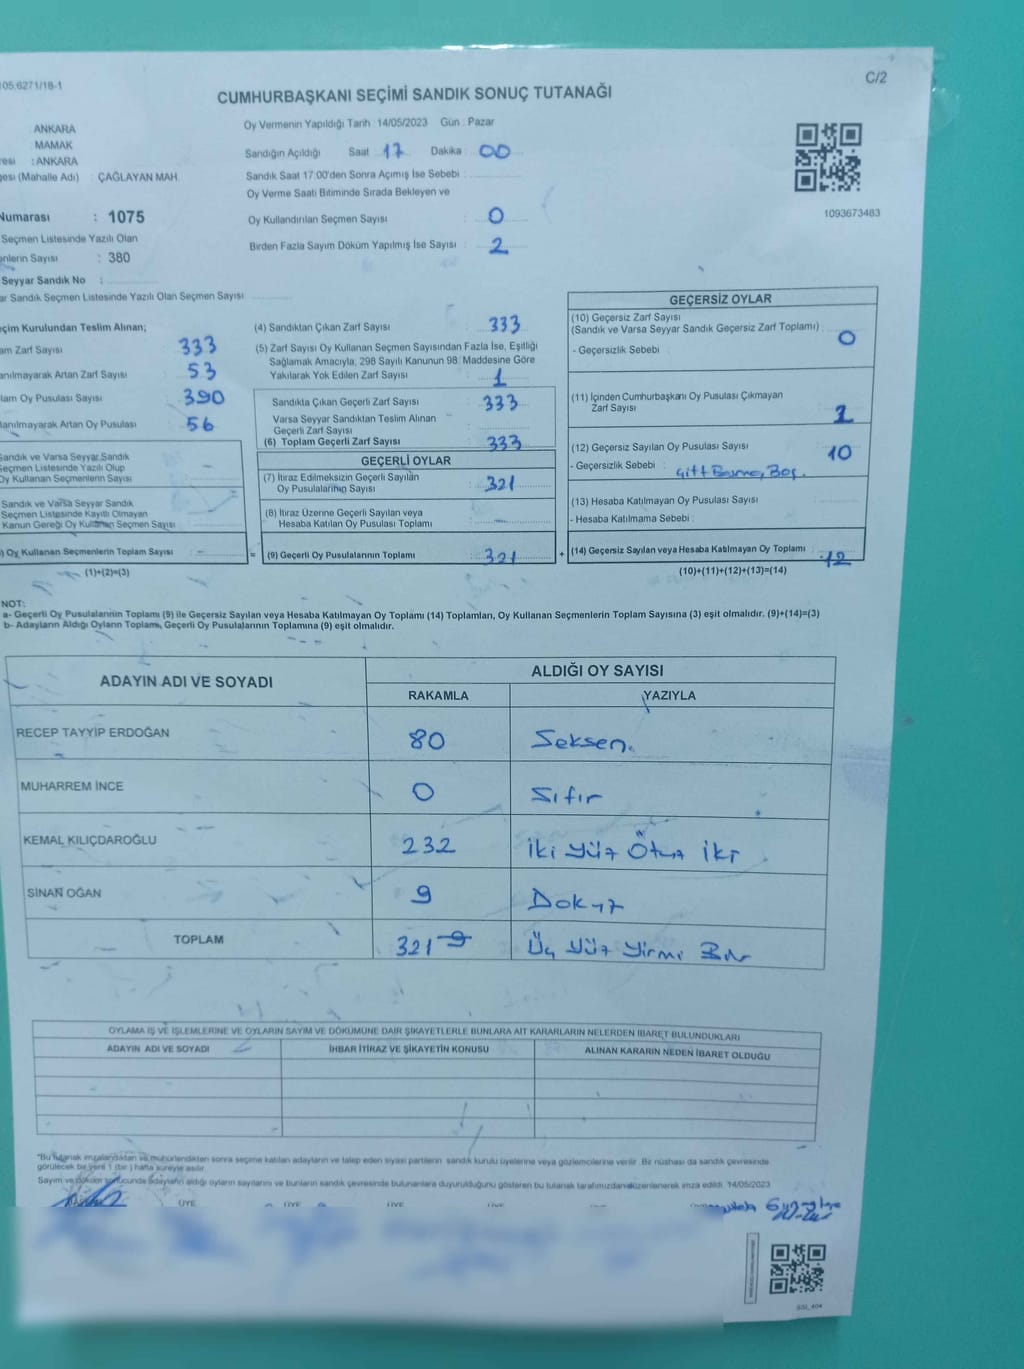 105.6271/18-1
C/2
CUMHURBAŞKANI SEÇİMİ SANDIK SONUÇ TUTANAĞI
ANKARA
MAMAK
: ANKARA
(Mahalle Adı) : ÇAĞLAYAN MAH.
Numarası : 1075
Seçmen Listesinde Yazılı Olan
Sayısı : 380
Seyyar Sandık No :
Sandık Seçmen Listesinde Yazılı Olan Seçmen Sayısı
Oy Vermenin Yapıldığı Tarih : 14/05/2023 Gün : Pazar
Sandığın Açıldığı Saat 17 Dakika : 00
Sandık Saat 17:00'den Sonra Açımış İse Sebebi :
Oy Verme Saati Bitiminde Sırada Bekleyen ve
Oy Kullandırılan Seçmen Sayısı : 0
Birden Fazla Sayım Döküm Yapılmış İse Sayısı : 2
1093673483
Kurulundan Teslim Alınan;
Zarf Sayısı 333
Artan Zarf Sayısı 53
Oy Pusulası Sayısı 390
Artan Oy Pusulası 56
Sandık ve Varsa Seyyar Sandık
Seçmen Listesinde Yazılı Olup
Oy Kullanan Seçmenlerin Sayısı
Sandık ve Varsa Seyyar Sandık
Seçmen Listesinde Kayıtlı Olmayan
Kanun Gereği Oy Kullanan Seçmen Sayısı
Oy Kullanan Seçmenlerin Toplam Sayısı : =
(1)+(2)=(3)
(4) Sandıktan Çıkan Zarf Sayısı : 333
(5) Zarf Sayısı Oy Kullanan Seçmen Sayısından Fazla İse, Eşitliği
Sağlamak Amacıyla; 298 Sayılı Kanunun 98. Maddesine Göre
Yakılarak Yok Edilen Zarf Sayısı : 1
Sandıkta Çıkan Geçerli Zarf Sayısı : 333
Varsa Seyyar Sandıktan Teslim Alınan
Geçerli Zarf Sayısı :
(6) Toplam Geçerli Zarf Sayısı : 333
GEÇERLİ OYLAR
(7) İtiraz Edilmeksizin Geçerli Sayılan
Oy Pusulalarının Sayısı : 321
(8) İtiraz Üzerine Geçerli Sayılan veya
Hesaba Katılan Oy Pusulası Toplamı :
(9) Geçerli Oy Pusulalarının Toplamı : 321 +
GEÇERSİZ OYLAR
(10) Geçersiz Zarf Sayısı
(Sandık ve Varsa Seyyar Sandık Geçersiz Zarf Toplamı) : 0
- Geçersizlik Sebebi :
(11) İçinden Cumhurbaşkanı Oy Pusulası Çıkmayan
Zarf Sayısı : 1
(12) Geçersiz Sayılan Oy Pusulası Sayısı : 10
- Geçersizlik Sebebi :
(13) Hesaba Katılmayan Oy Pusulası Sayısı :
- Hesaba Katılmama Sebebi :
(14) Geçersiz Sayılan veya Hesaba Katılmayan Oy Toplamı : 12
(10)+(11)+(12)+(13)=(14)
NOT:
a- Geçerli Oy Pusulalarının Toplamı (9) ile Geçersiz Sayılan veya Hesaba Katılmayan Oy Toplamı (14) Toplamları, Oy Kullanan Seçmenlerin Toplam Sayısına (3) eşit olmalıdır. (9)+(14)=(3)
b- Adayların Aldığı Oyların Toplamı, Geçerli Oy Pusulalarının Toplamına (9) eşit olmalıdır.
ADAYIN ADI VE SOYADI
ALDIĞI OY SAYISI
RAKAMLA YAZIYLA
RECEP TAYYİP ERDOĞAN 80 Seksen.
MUHARREM İNCE 0 Sıfır
KEMAL KILIÇDAROĞLU 232 İki yüz Otuz İki
SİNAN OĞAN 9 Dokuz
TOPLAM 321 Üç yüz yirmi Bir
OYLAMA İŞ VE İŞLEMLERİNE VE OYLARIN SAYIM VE DÖKÜMÜNE DAİR ŞİKAYETLERLE BUNLARA AİT KARARLARIN NELERDEN İBARET BULUNDUKLARI
ADAYIN ADI VE SOYADI İHBAR İTİRAZ VE ŞİKAYETİN KONUSU ALINAN KARARIN NEDEN İBARET OLDUĞU
"Bu tutanak imzalandıktan ve mühürlendikten sonra seçime katılan adayların ve talep eden siyasi partilerin sandık kurulu üyelerine veya gözlemcilerine verilir. Bir nüshası da sandık çevresinde
görülecek bir yere 1 (bir) hafta süreyle asılır.
Sayım ve döküm sonucunda adayların aldığı oyların sayılarını ve bunların sandık çevresinde bulunanlara duyurulduğunu gösteren bu tutanak tarafımızdan düzenlenerek imza edildi. 14/05/2023
ÜYE ÜYE ÜYE
SSI_404